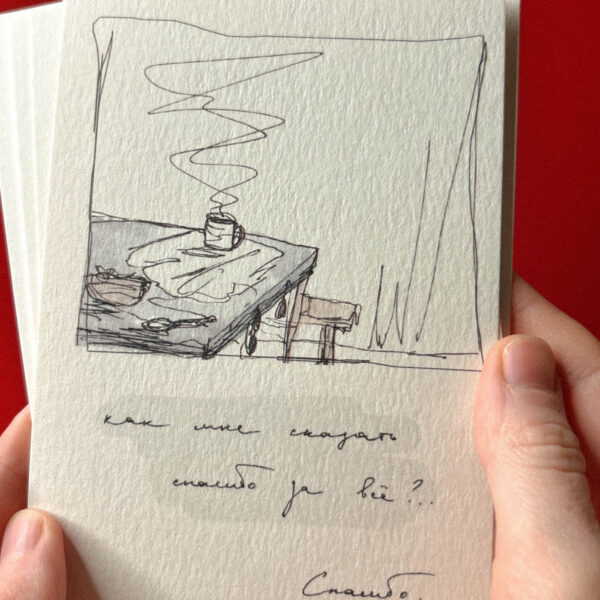 как мне сказать
спасибо за всё?..
Спасибо.